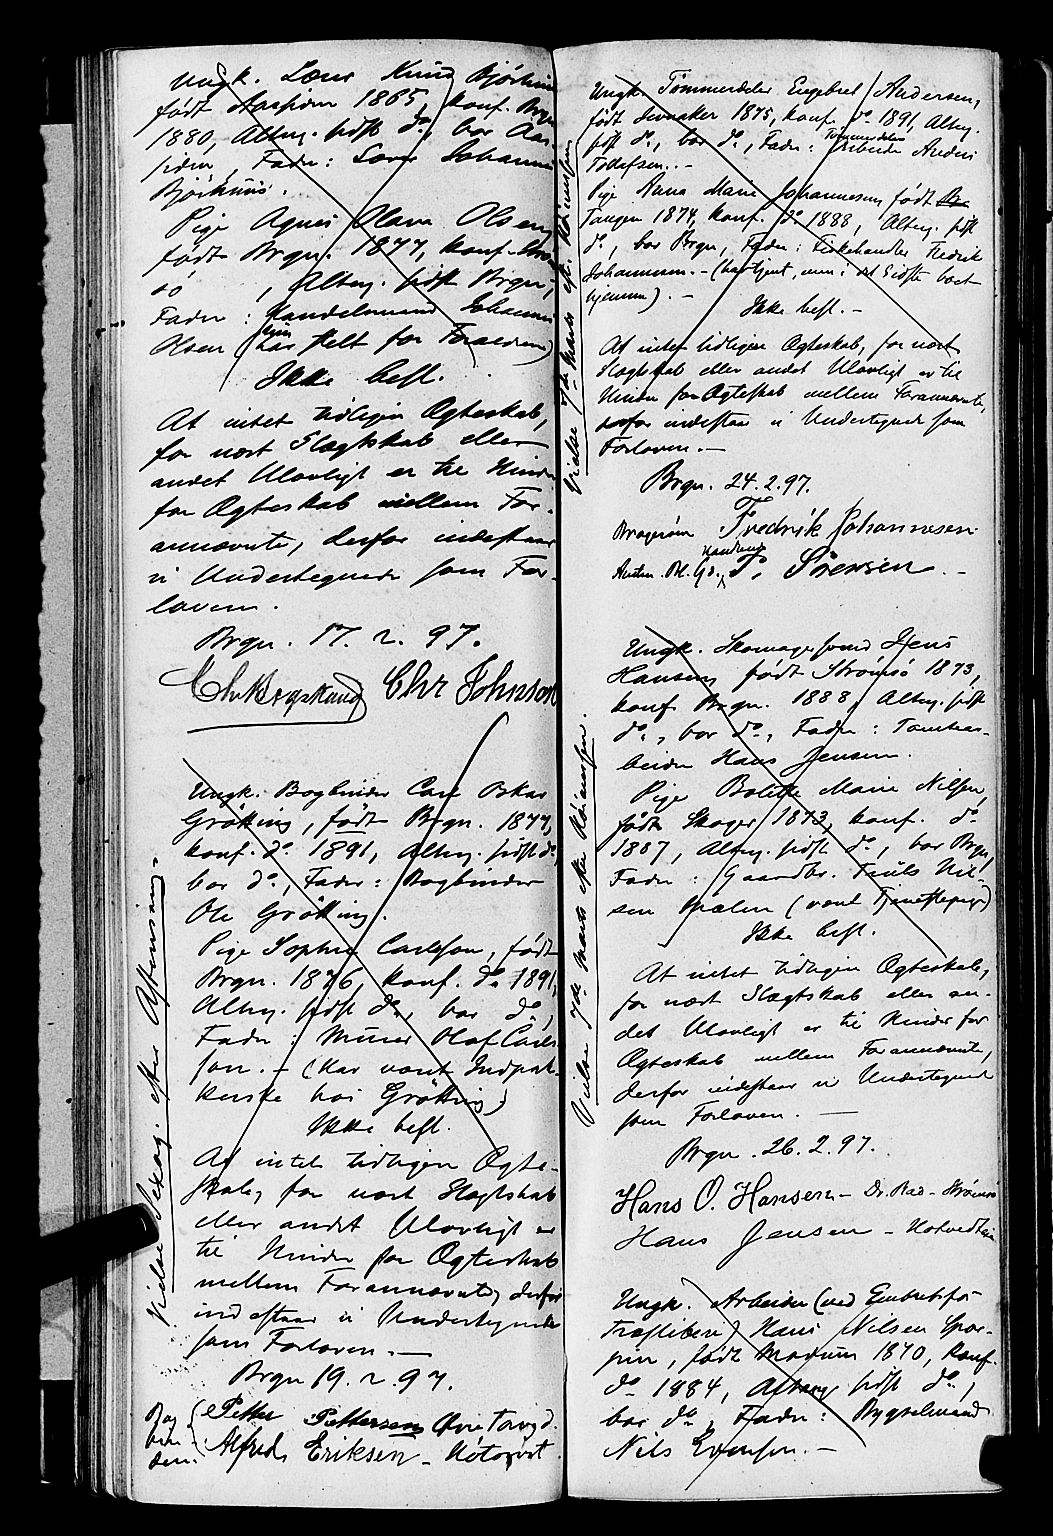 Ungk. Lars Knud Bjørhuus
født Aaspiden 1865, konf. Brgn
1880, Altrg. sidst do, bor Aas-
piden, Fader: Lars Johannes
Bjørhuus.
Pige Agnes Olava Olsen,
født Brgn. 1877, konf.
do, Altrg. sidst Brgn,
Fader: Handelsmand Johannes
Olsen (har stelt for Forældrene)
Ikke besl.
At intet tidligere Ægteskab,
for nært Slægtskab eller
andet Ulovligt er til Hinder
for Ægteskab mellem For-
annævnte, derfor indestaar
vi Undertegnede som For-
lovere.
Brgn. 17. 2. 97.
Chr Johnson
Ungk. Bogbinder Carl Oskar
Grøtting, født Brgn. 1877,
konf. do 1891, Altrg. sidst do
bor do, Fader: Bogbinder
Ole Grøtting.
Pige Sophie Carlson, født
Brgn. 1876, konf. do 1891,
Altrg. sidst do, bor do,
Fader: Murer Olaf Carl-
son. - (har været Indpak-
kerske hos Grøtting)
Ikke besl.
At intet tidligere Ægte-
skab, for nært Slægtskab
eller andet Ulovligt er
til Hinder for Ægteskab
mellem Forannævnte, derfor
indestaar vi Undertegnede
som Forlovere. -
Brgn 19. 2. 97.
Bog-
bin-
dere. Petter Pettersen Øvre Torvgd.
Alfred Eriksen - Nøtoqvist
Vielse Sexag. efter Aftensang.
Ungk. Tømmerdeler Engebret Andersen,
født Svenaker 1875, konf. do 1891, Altrg.
sidst do, bor do, Fader: Tømmerdeler Anders
Tollefsen. -
Pige Anna Marie Johannesen, født
Tangen 1874, konf. do 1888, Altrg. sidst
do, bor Brgn, Fader: Fiskehandler Fredrik
Johannesen. - (har tjent, men i det Sidste været
hjemme). -
Ikke besl. -
At intet tidligere Ægteskab, for nært
Slægtskab eller andet Ulovligt er til
Hinder for Ægteskab mellem Forannævnte,
derfor indestaar vi Undertegnede som
Forlovere. -
Brgn. 24. 2. 97.
Bragerøen Fredrik Johannesen
P. Sørensen -
Vielse 7de Marts eft. Høimessen
Ungk. Skomagersvend Jens
Hansen, født Strømsø 1873,
konf. Brgn. 1888, Altrg. sidst
do, bor do, Fader: Tomtear-
beider Hans Jensen.
Pige Bolette Marie Nilsen,
født Skoger 1873, konf. do
1887, Altrg. sidst do, bor Brgn,
Fader: Gaardbr. Truls Nil-
sen (vært Tjenestepige)
Ikke besl.
At intet tidligere Ægteskab,
for nært Slægtskab eller an-
det Ulovligt er til Hinder for
Ægteskab mellem Forannævnte,
derfor indestaar vi Undertegnede
som Forlovere. -
Brgn. 26. 2. 97.
Hans O. Hansen - Strømsø
Hans Jensen -
Vielse 7de Marts efter Høimessen.
Ungk. Arbeider (ved Embretsfos
Træsliberi) Hans Nilsen
født Modum 1870, konf.
do 1884, Altrg sidst do,
bor do, Fader: Bygselmand
Nils Evensen. -